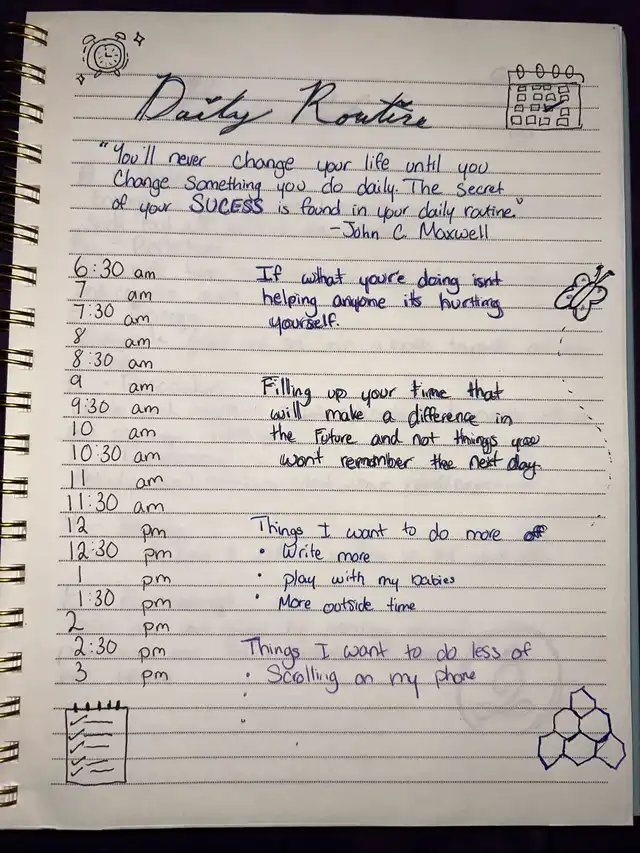 Daily Routine
"You'll never change your life until you
Change something you do daily. The secret
of your SUCESS is found in your daily routine."
-John C. Maxwell
6:30 am
If what you're doing isnt
7 am
helping anyone its hurting
7:30 am
yourself.
8 am
8:30 am
9 am
Filling up your time that
9:30 am
will make a difference in
10 am
the Future and not things you
10:30 am
wont remember the next day.
11 am
11:30 am
12 pm
Things I want to do more off
12:30 pm
• Write more
1 pm
• Play with my babies
1:30 pm
• More outside time
2 pm
2:30 pm
Things I want to do less of
3 pm
• Scrolling on my phone